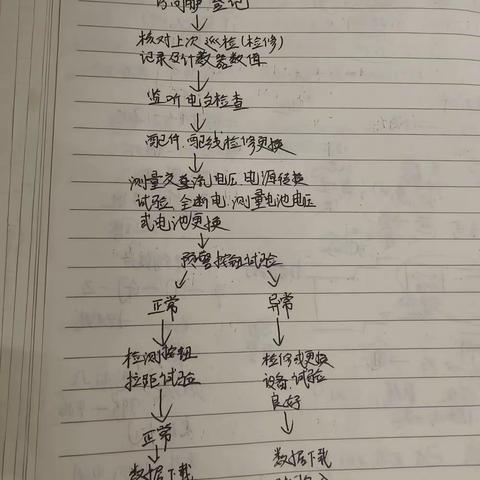 登记
核对上次巡检(检修)
记录及计数器数值
监听电台检查
配件.配线检修更换
测量交直流电压.电源转换
试验.全断电.测量电池电压
或电池更换
预警按钮试验
正常
异常
检测按钮
拉距试验
检修或更换
设备.试验
良好
正常
数据下载
数据下载